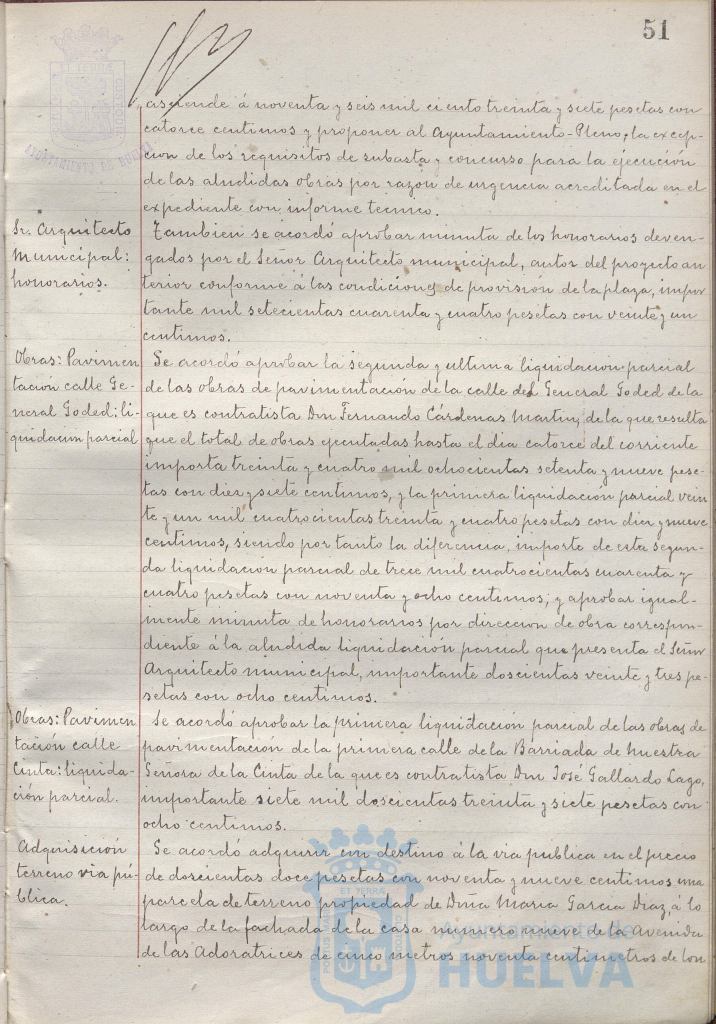 51
asciende á noventa y seis mil ciento treinta y siete pesetas con
catorce centimos y proponer al Ayuntamiento-Pleno, la excep-
cion de los requisitos de subasta y concurso para la ejecución
de las aludidas obras por razon de urgencia acreditada en el
expediente con informe tecnico.
Sr. Arquitecto
Municipal:
honorarios.
Tambien se acordó aprobar minuta de los honorarios deven-
gados por el Señor Arquitecto municipal, autor del proyecto an-
terior conforme á las condiciones de provisión de la plaza, impor-
tante mil setecientas cuarenta y cuatro pesetas con veinte y un
centimos.
Obras: Pavimen
tacion calle Ge-
neral Goded: li-
quidacion parcial
Se acordó aprobar la segunda y ultima liquidacion parcial
de las obras de pavimentación de la calle del General Goded de la
que es contratista Don Fernando Cárdenas Martin, de la que resulta
que el total de obras ejecutadas hasta el dia catorce del corriente
importa treinta y cuatro mil ochocientas setenta y nueve pese-
tas con diez y siete centimos, y la primera liquidación parcial vein
te y un mil cuatrocientas treinta y cuatro pesetas con diez y nueve
centimos, siendo por tanto la diferencia, importe de esta segun-
da liquidacion parcial de trece mil cuatrocientas cuarenta y
cuatro pesetas con noventa y ocho centimos; y aprobar igual-
mente minuta de honorarios por direccion de obra correspon-
diente á la aludida liquidación parcial que presenta el Señor
Arquitecto municipal, importante doscientas veinte y tres pe-
setas con ocho centimos.
Obras: Pavimen
tación calle
Cinta: liquida-
ción parcial.
Se acordó aprobar la primera liquidación parcial de las obras de
pavimentación de la primera calle de la Barriada de nuestra
Señora de la Cinta de la que es contratista Don José Gallardo Lago,
importante siete mil doscientas treinta y siete pesetas con
ocho centimos.
Adquisición
terreno via pú-
blica.
Se acordó adquirir con destino á la via publica en el precio
de doscientas doce pesetas con noventa y nueve centimos una
parcela de terreno propiedad de Doña Maria Garcia Diaz, á lo
largo de la fachada de la casa numero nueve de la Avenida
de las Adoratrices de cinco metros noventa centimetros de lon
Ayuntamiento de
HUELVA